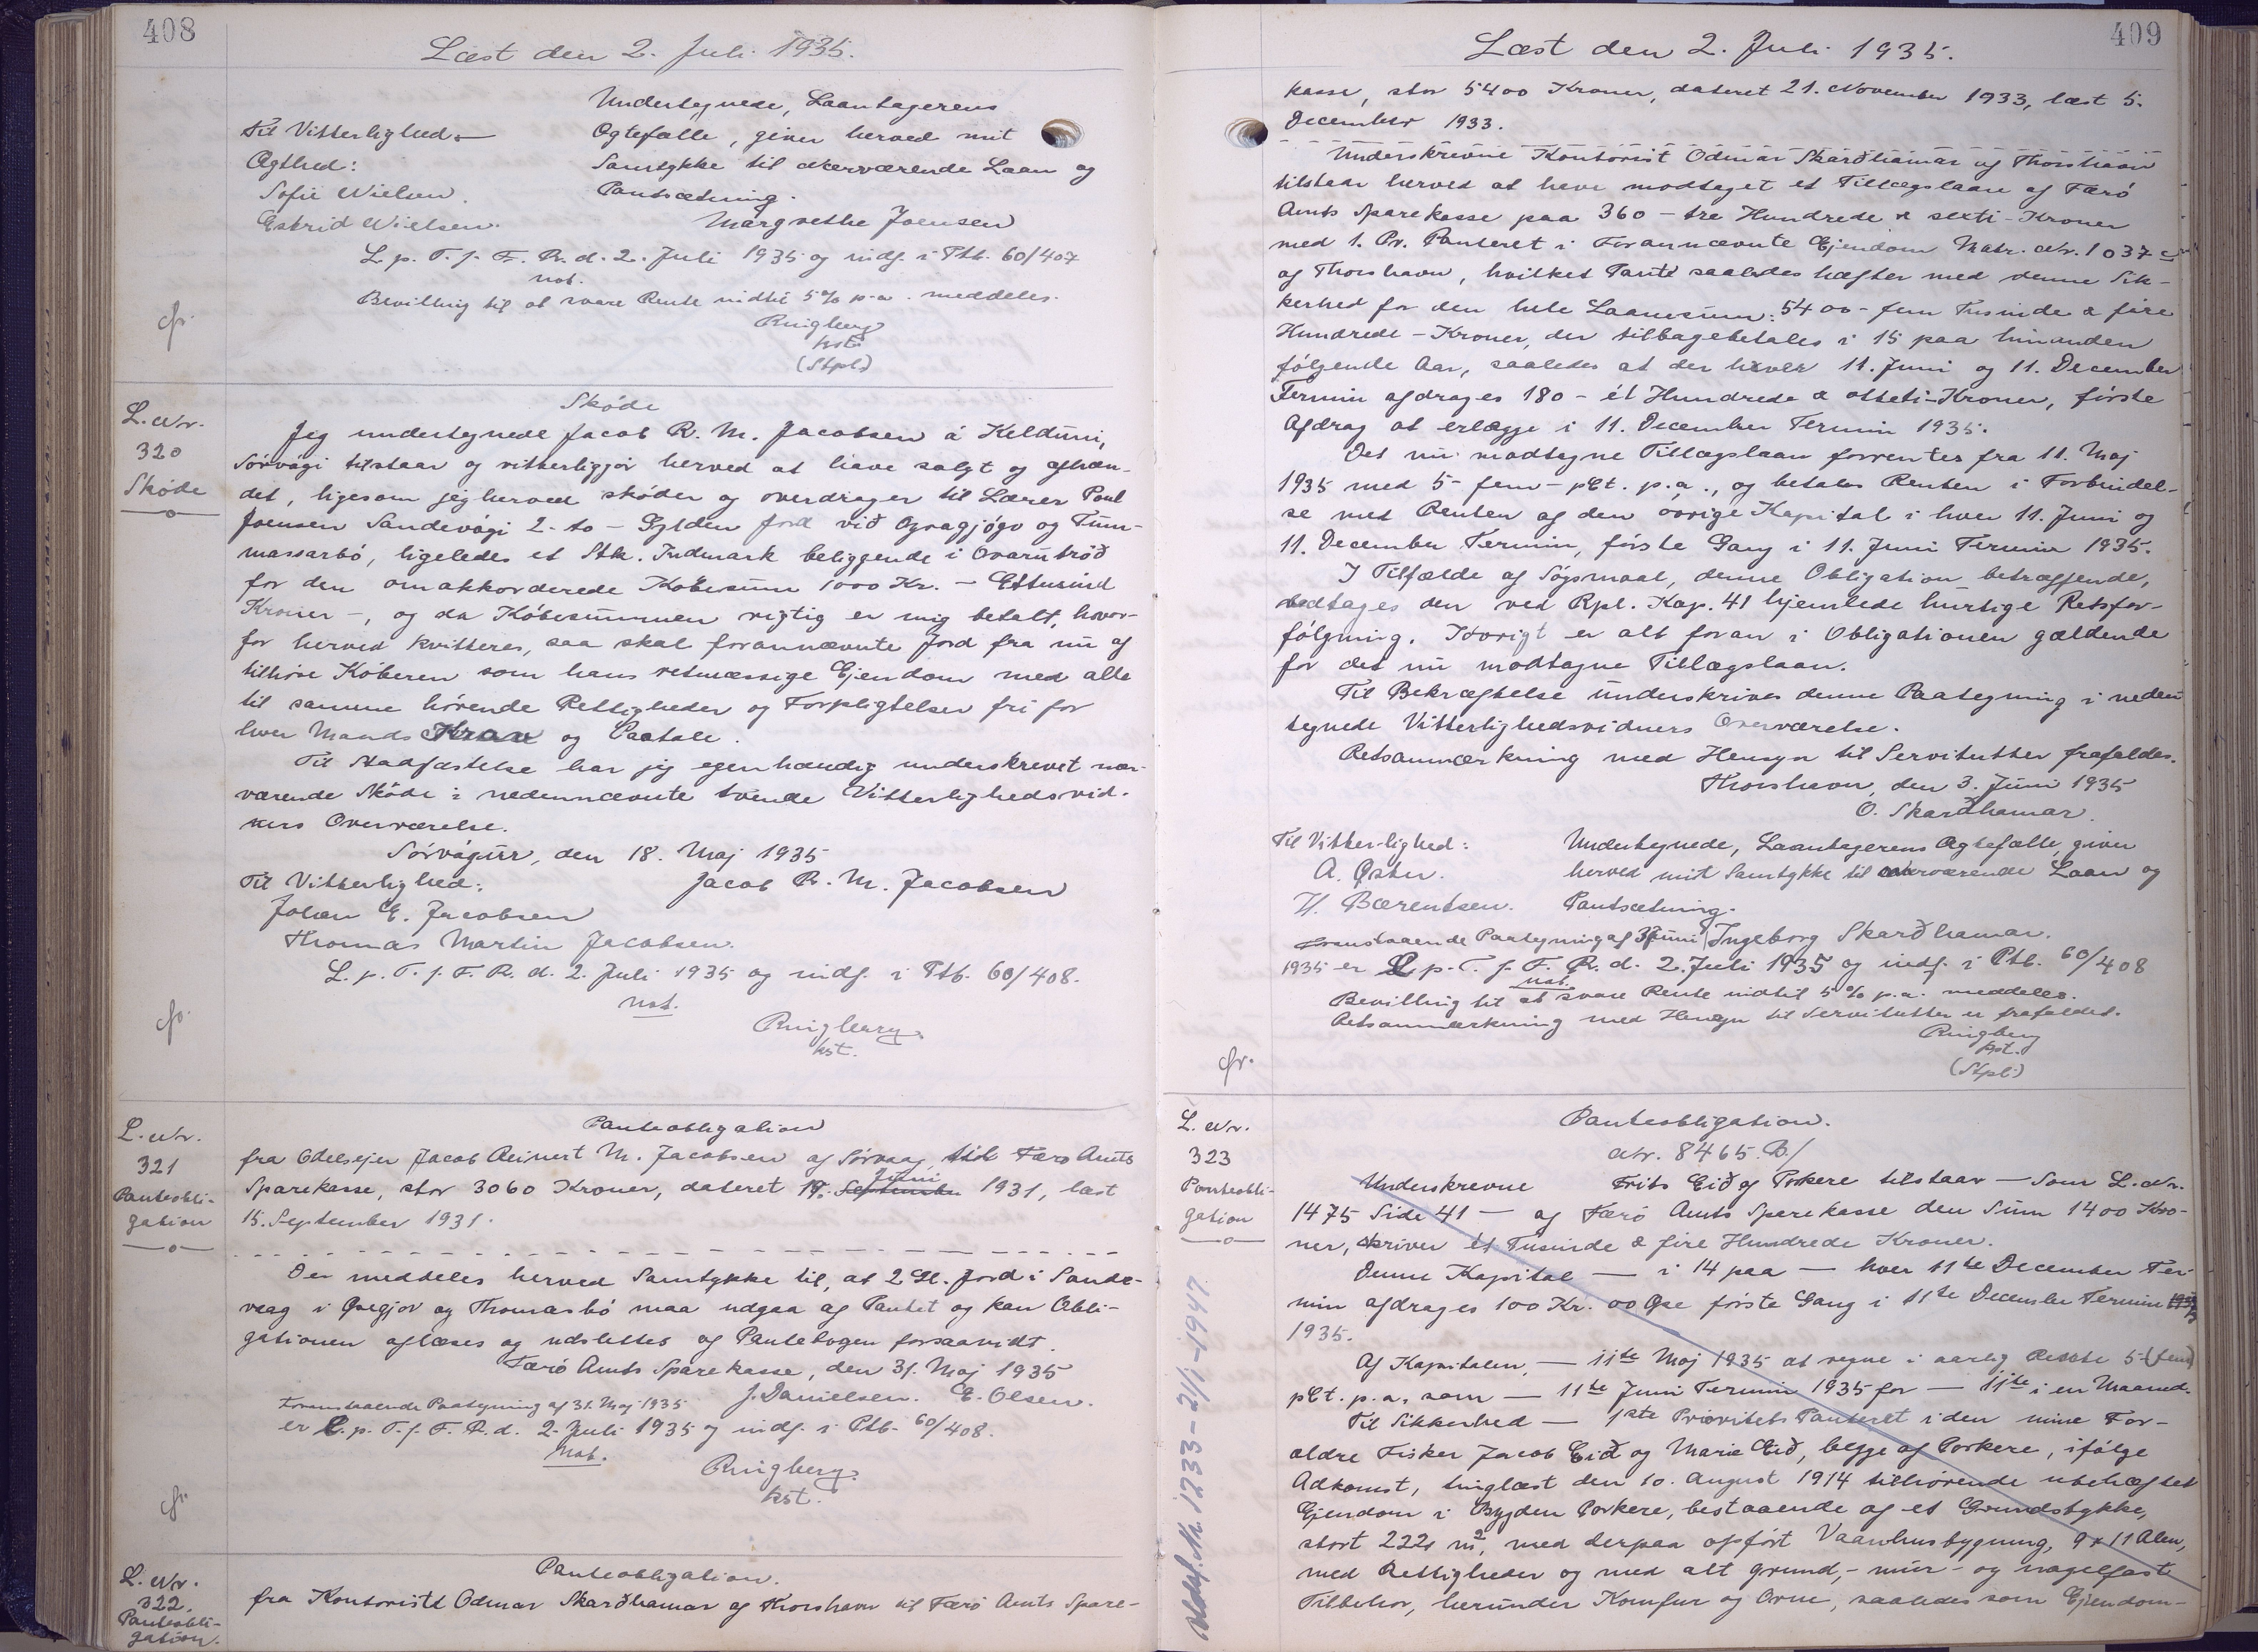 408
Læst den 2. Juli 1935.
Undertegnede, Laantagerens
Til Vitterlighed
Ægtefælle, giver herved mit
Ægthed:
Samtykke til nærværende Laan og
Sofie Nielsen.
Pantsætning.
Estrid Nielsen.
Margrethe Joensen
L. p. T. f. F. R. d. 2. Juli 1935 og indf. i Ptb. 60/407
not.
Bevilling til at svare Rente indtil 5% p.a. meddeles.
Ringberg
kst.
(Stpl.)
cfr.
L. Nr.
320
Skøde
Skøde
Jeg undertegnede Jacob R. M. Jacobsen á Kelduni,
Sørvági tilstaar og vitterliggjør herved at have solgt og afhæn-
det, ligesom jeg herved skøder og overdrager til Lærer Poul
Joensen Sandevági 2 - to - Gylden Jord við Ogragjógv og Tum-
massarbø, ligeledes et Stk. Indmark beliggende i Ovarutrøð
for den omakkorderede Købesum 1000 Kr. - Ettusind
Kroner -, og da Købesummen rigtig er mig betalt, hvor-
for herved kvitteres, saa skal forannævnte Jord fra nu af
tilhøre Køberen som hans retmæssige Ejendom med alle
til samme hørende Rettigheder og Forpligtelser fri for
hver Mands Krav og Paatale.
Til Stadfæstelse har jeg egenhændig underskrevet nær-
værende Skøde i nedennævnte tvende Vitterlighedsvid-
ners Overværelse.
Sørvágur, den 18. Maj 1935
Til Vitterlighed:
Jacob R. M. Jacobsen
Johan E. Jacobsen
Thomas Martin Jacobsen.
L. p. T. f. F. R. d. 2. Juli 1935 og indf. i Ptb. 60/408.
not.
Ringberg
kst.
cfr.
L. Nr.
321
Panteobli-
gation
Panteobligation
fra Odelsejer Jacob Reinert M. Jacobsen af Sørvaag, til Færø Amts
Juni
Sparekasse, stor 3060 Kroner, dateret September 1931, læst
15. September 1931.
Der meddeles herved Samtykke til, at 2 Gl. Jord i Sande-
vaag i Øregjov og Thomasbø maa udgaa af Pantet og kan Obli-
gationen aflæses og udslettes af Pantebogen forsaavidt.
Færø Amts Sparekasse, den 31. Maj 1935
J. Danielsen. E. Olsen.
Foranstaaende Paategning af 31. Maj 1935
er L. p. T. f. F. R. d. 2. Juli 1935 og indf. i Ptb. 60/408.
not.
Ringberg
kst.
cfr.
L. Nr.
322.
Panteobli-
gation.
Panteobligation.
fra Kontorist Odmar Skarðhamar af Thorshavn til Færø Amts Spare-
409
Læst den 2. Juli 1935.
kasse, stor 5400 Kroner, dateret 21. November 1933, læst 5.
December 1933.
Underskrevne Kontorist Odmar Skarðhamar af Thorshavn
tilstaar herved at have modtaget et Tillægslaan af Færø
Amts Sparekasse paa 360 - tre Hundrede & sexti - Kroner
med 1. Pr. Panteret i Forannævnte Ejendom Matr. Nr. 1037 c
af Thorshavn, hvilket Pant saaledes hæfter med denne Sik-
kerhed for den hele Laanesum: 5400 - fem Tusinde & fire
Hundrede - Kroner, der tilbagebetales i 15 paa hinanden
følgende Aar, saaledes at der hver 11. Juni og 11. December
Termin afdrages 180 - ét Hundrede & otteti - Kroner, første
Afdrag at erlægge i 11. December Termin 1935.
Det nu modtagne Tillægslaan forrentes fra 11. Maj
1935 med 5 - fem - pCt. p.a., og betales Renten i Forbindel-
se med Renten af den øvrige Kapital i hver 11. Juni og
11. December Termin, første Gang i 11. Juni Termin 1935.
I Tilfælde af Søgsmaal, denne Obligation betræffende,
vedtages den ved Rpl. Kap. 41 hjemlede hurtige Retsfor-
følgning. Iøvrigt er alt foran i Obligationen gældende
for det nu modtagne Tillægslaan.
Til Bekræftelse underskrives denne Paategning i neden
tegnede Vitterlighedsvidners Overværelse.
Retsanmærkning med Hensyn til Servitutter frafaldes.
Thorshavn, den 3. Juni 1935
O. Skarðhamar.
Til Vitterlighed:
Undertegnede, Laantagerens Ægtefælle, giver
A. Øster.
herved mit Samtykke til nærværende Laan og
H. Bærentsen.
Pantsætning.
Foranstaaende Paategning af 3 Juni
Ingeborg Skarðhamar.
1935 er L. p. T. f. F. R. d. 2. Juli 1935 og indf. i Ptb. 60/408
not.
Bevilling til at svare Rente indtil 5% p.a. meddeles.
Retsanmærkning med Hensyn til Servitutter er frafaldet.
Ringberg
kst.
(Stpl.)
cfr.
L. Nr.
323
Panteobli-
gation
Aflæst. Nr. 1233 - 2/1 - 1947
Panteobligation.
Nr. 8465. B/
Underskrevne Frits Eið af Porkere tilstaar — Som L. Nr.
1475 Side 41 — af Færø Amts Sparekasse den Sum 1400 Kro-
ner, skriver ét Tusinde & fire Hundrede Kroner.
Denne Kapital — i 14 paa — hver 11te December Ter-
min afdrages 100 Kr. 00 Øre første Gang i 11te December Termin
1935.
Af Kapitalen — 11te Maj 1935 at regne i aarlig Rente 5 - (fem)
pCt. p.a. som — 11te Juni Termin 1935 for — 11te i en Maaned.
Til Sikkerhed — 1ste Prioritets Panteret i den mine For-
ældre Fisker Jacob Eið og Marie Eið, begge af Porkere, ifølge
Adkomst, tinglæst den 10. August 1914 tilhørende ubehæftet
Ejendom i Bygden Porkere, bestaaende af et Grundstykke,
stort 222 m², med derpaa opført Vaanhusbygning, 9 x 11 Alen,
med Rettigheder og med alt grund-, mur- og nagelfast
Tilbehør, herunder Komfur og Ovne, saaledes som Ejendom-